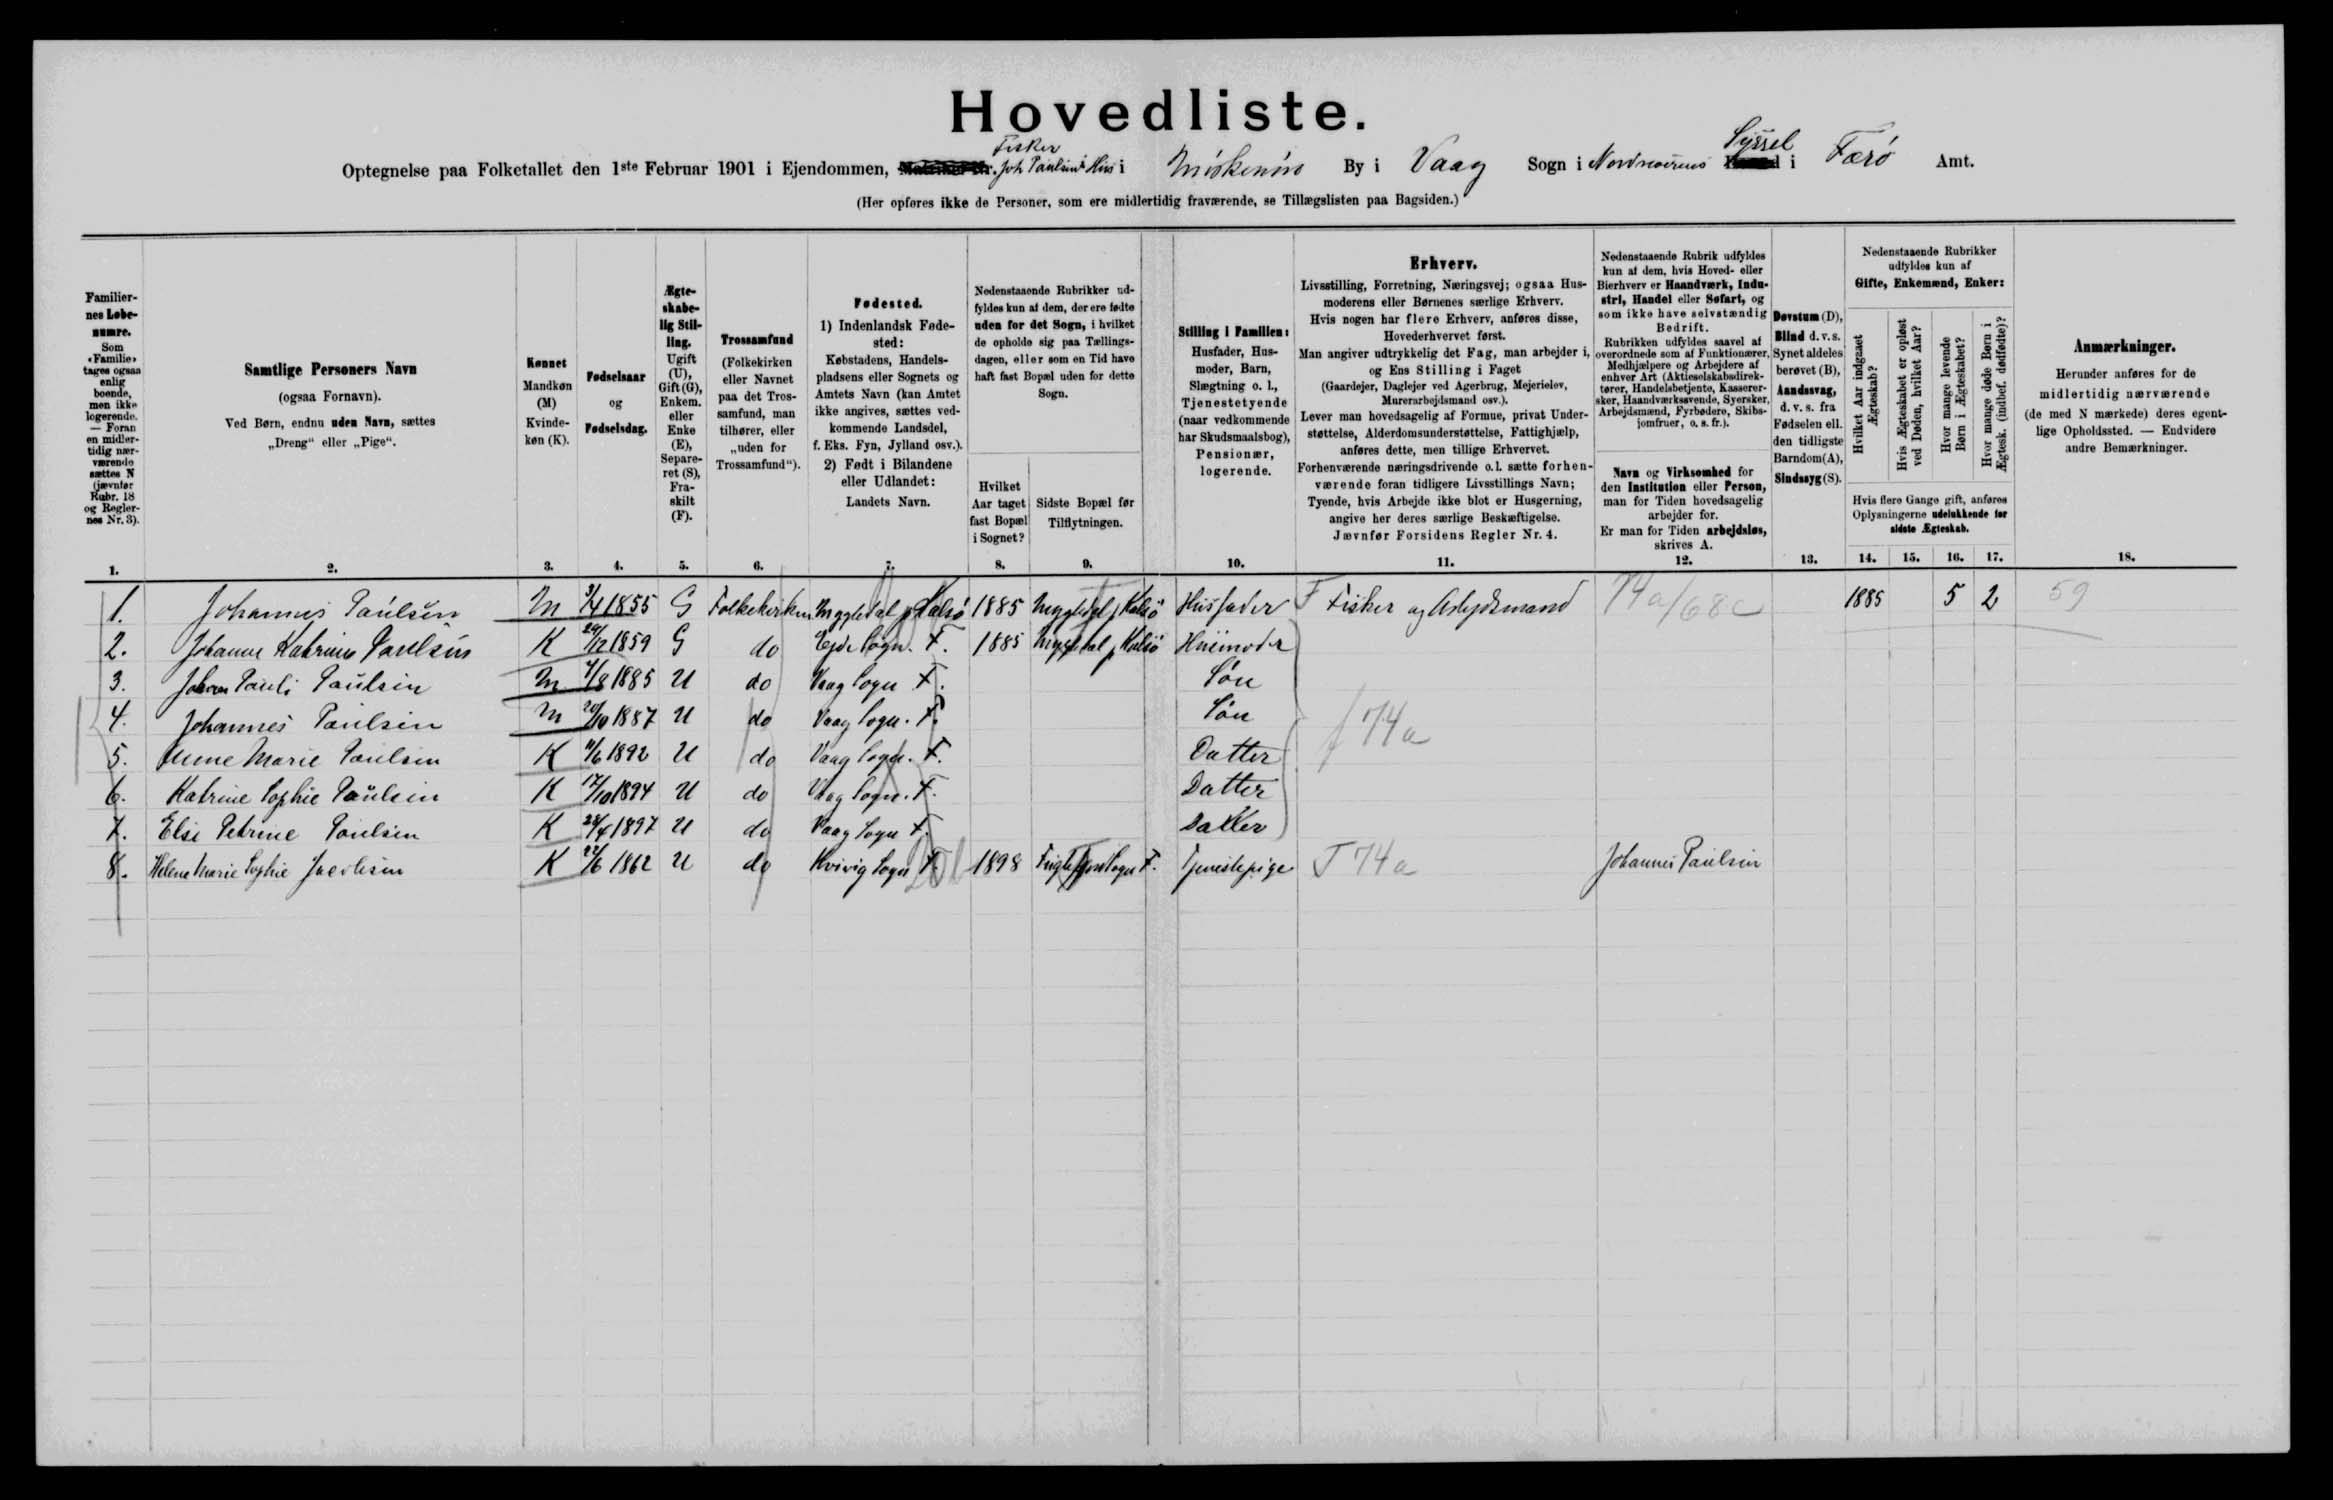 Hovedliste.
Fisker Syssel
Optegnelse paa Folketallet den 1ste Februar 1901 i Ejendommen, Joh Paulsens Hus i By i Vaag Sogn i Norderøernes i Færø Amt.
(Her opføres ikke de Personer, som ere midlertidig fraværende, se Tillægslisten paa Bagsiden.)
Familiernes Løbenumre.
Som «Familie» tages ogsaa enlig boende, men ikke logerende. — Foran en midlertidig nærværende sættes N (jævnfør Rubr. 18 og Reglernes Nr. 3).
1.
Samtlige Personers Navn
(ogsaa Fornavn).
Ved Børn, endnu uden Navn, sættes
„Dreng“ eller „Pige“.
2.
Kønnet
Mandkøn (M)
Kvindekøn (K).
3.
Fødselsaar
og
Fødselsdag.
4.
Ægteskabelig Stilling.
Ugift (U), Gift (G), Enkem. eller Enke (E), Separeret (S), Fraskilt (F).
5.
Trossamfund
(Folkekirken eller Navnet paa det Trossamfund, man tilhører, eller „uden for Trossamfund“).
6.
Fødested.
1) Indenlandsk Fødested:
Købstadens, Handelspladsens eller Sognets og Amtets Navn (kan Amtet ikke angives, sættes vedkommende Landsdel, f. Eks. Fyn, Jylland osv.).
2) Født i Bilandene eller Udlandet:
Landets Navn.
7.
Nedenstaaende Rubrikker udfyldes kun af dem, der ere fødte uden for det Sogn, i hvilket de opholde sig paa Tællingsdagen, eller som en Tid have haft fast Bopæl uden for dette Sogn.
Hvilket Aar taget fast Bopæl i Sognet?
8.
Sidste Bopæl før Tilflytningen.
9.
Stilling i Familien:
Husfader, Husmoder, Barn, Slægtning o. l., Tjenestetyende (naar vedkommende har Skudsmaalsbog), Pensionær, logerende.
10.
Erhverv.
Livsstilling, Forretning, Næringsvej; ogsaa Husmoderens eller Børnenes særlige Erhverv.
Hvis nogen har flere Erhverv, anføres disse, Hovederhvervet først.
Man angiver udtrykkelig det Fag, man arbejder i, og Ens Stilling i Faget
(Gaardejer, Daglejer ved Agerbrug, Mejerielev, Murerarbejdsmand osv.).
Lever man hovedsagelig af Formue, privat Understøttelse, Alderdomsunderstøttelse, Fattighjælp, anføres dette, men tillige Erhvervet.
Forhenværende næringsdrivende o.l. sætte forhenværende foran tidligere Livsstillings Navn;
Tyende, hvis Arbejde ikke blot er Husgerning, angive her deres særlige Beskæftigelse.
Jævnfør Forsidens Regler Nr. 4.
11.
Nedenstaaende Rubrik udfyldes kun af dem, hvis Hoved- eller Bierhverv er Haandværk, Industri, Handel eller Søfart, og som ikke have selvstændig Bedrift.
Rubrikken udfyldes saavel af overordnede som af Funktionærer, Medhjælpere og Arbejdere af enhver Art (Aktieselskabsdirektører, Handelsbetjente, Kasserersker, Haandværkssvende, Syersker, Arbejdsmænd, Fyrbødere, Skibsjomfruer, o. s. fr.).
Navn og Virksomhed for den Institution eller Person, man for Tiden hovedsagelig arbejder for.
Er man for Tiden arbejdsløs, skrives A.
12.
Døvstum (D), Blind d.v.s. Synet aldeles berøvet (B), Aandssvag, d. v. s. fra Fødselen ell. den tidligste Barndom (A), Sindssyg (S).
13.
Nedenstaaende Rubrikker udfyldes kun af
Gifte, Enkemænd, Enker:
Hvilket Aar indgaaet Ægteskab?
Hvis Ægteskabet er opløst ved Døden, hvilket Aar?
Hvor mange levende Børn i Ægteskabet?
Hvor mange døde Børn i Ægtesk. (indbef. dødfødte)?
Hvis flere Gange gift, anføres Oplysningerne udelukkende for sidste Ægteskab.
14. 15. 16. 17.
Anmærkninger.
Herunder anføres for de midlertidig nærværende (de med N mærkede) deres egentlige Opholdssted. — Endvidere andre Bemærkninger.
18.
1. Johannes Paulsen M 3/4 1855 G Folkekirken Mygledal p Kalsø 1885 Mygledal p Kalsø Husfader F Fisker og Arbejdsmand 74a/68c 1885 5 2 59
2. Johanne Katrine Paulsen K 29/12 1859 G do Ejde Sogn. F. 1885 Mygledal p Kalsø Husmoder
3. Pauli Paulsen M 4/8 1885 U do Vaag Sogn F. Søn
4. Johannes Paulsen M 20/10 1887 U do Vaag Sogn. F. Søn 74a
5. Anne Marie Paulsen K 11/6 1892 U do Vaag Sogn. F. Datter
6. Katrine Sophie Paulsen K 17/10 1894 U do Vaag Sogn. F. Datter
7. Else Petrine Paulsen K 28/4 1897 U do Vaag Sogn F. Datter
8. Helene Marie Sophie Jacobsen K 22/6 1862 U do Kvivig Sogn F. 1898 Sogn F. Tjenestepige T 74a Johannes Paulsen